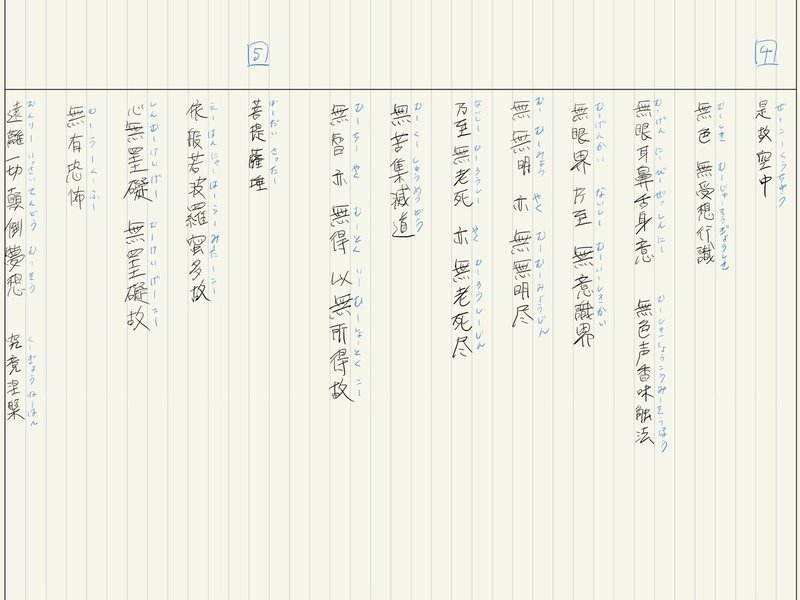 4
是故空中
ぜーこーくうちゅう
無色 無受想行識
むーしき むーじゅーそうぎょうしき
無眼耳鼻舌身意 無色声香味触法
むーげん にー びー ぜっ しん にー むーしきしょうこうみーそうほう
無眼界 乃至 無意識界
むーげんかい ないしー むーいーしきかい
無無明 亦 無無明尽
むーむみょう やく むーむーみょうじん
乃至無老死 亦 無老死尽
ないしー むーろうしー やく むーろうしーじん
無苦集滅道
むーくーしゅうめつどう
無智 亦 無得 以無所得故
むーちー やく むーとく いーむーしょーとく こー
5
菩提薩埵
ぼーだい さったー
依般若波羅蜜多故
えーはんにゃーはーらーみたーこー
心無罣礙 無罣礙故
しんむーけいげー むーけいげーこー
無有恐怖
むーうーくーふー
遠離一切顛倒夢想 究竟涅槃
おんりーいっさいてんどうむーそう くーぎょうねーはん